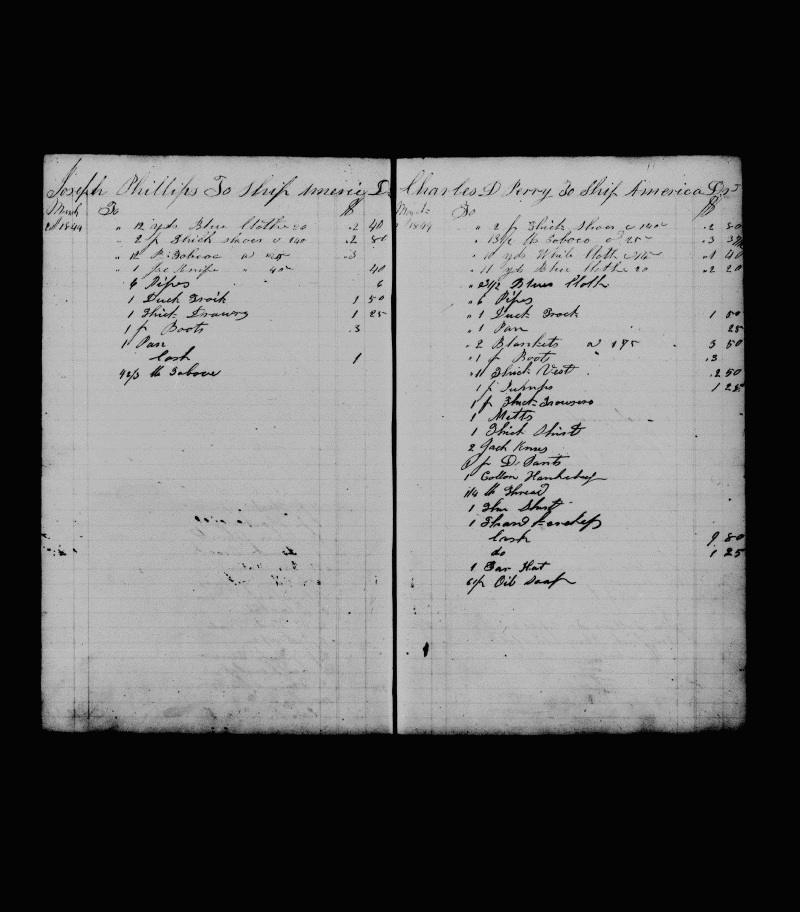 Joseph Phillips To Ship America Dr
March To $
1844 " 12 yds Blue Cloth 20 2 40
" 2 p Thick shoes a 140 2 80
" 12 lb Tobacco a 25 3
" 1 Knife " 40 40
6 Pipes 6
1 Duck Frock 1 50
1 Thick Drawers 1 25
1 p Boots 3
1 Pan
Cash 1
lb Tobacco
Charles D Perry To Ship America Dr
March To $
1844 " 2 p Thick Shoes a 140 2 80
" 13 1/2 lb Tobacco a 25 3
" 10 yds White Cloth 1 40
" 11 yds Blue Cloth 20 2 20
" Blue Cloth
" 6 Pipes
" 1 Duck Frock 1 50
" 1 Pan 25
" 2 Blankets a 175 3 50
" 1 p Boot 3
" 1 Thick Vest 2 50
1 p Pumps 1 25
1 p Thick Trousers
1 Mitts
1 Thick Shirt
2 Jack Knives
p D Pants
1 Cotton Hankerchief
1/4 lb Thread
1 Shirt
1 Hand kerchiefs
Cash 9 80
do 1 25
1 Tar Hat
Oil Soap